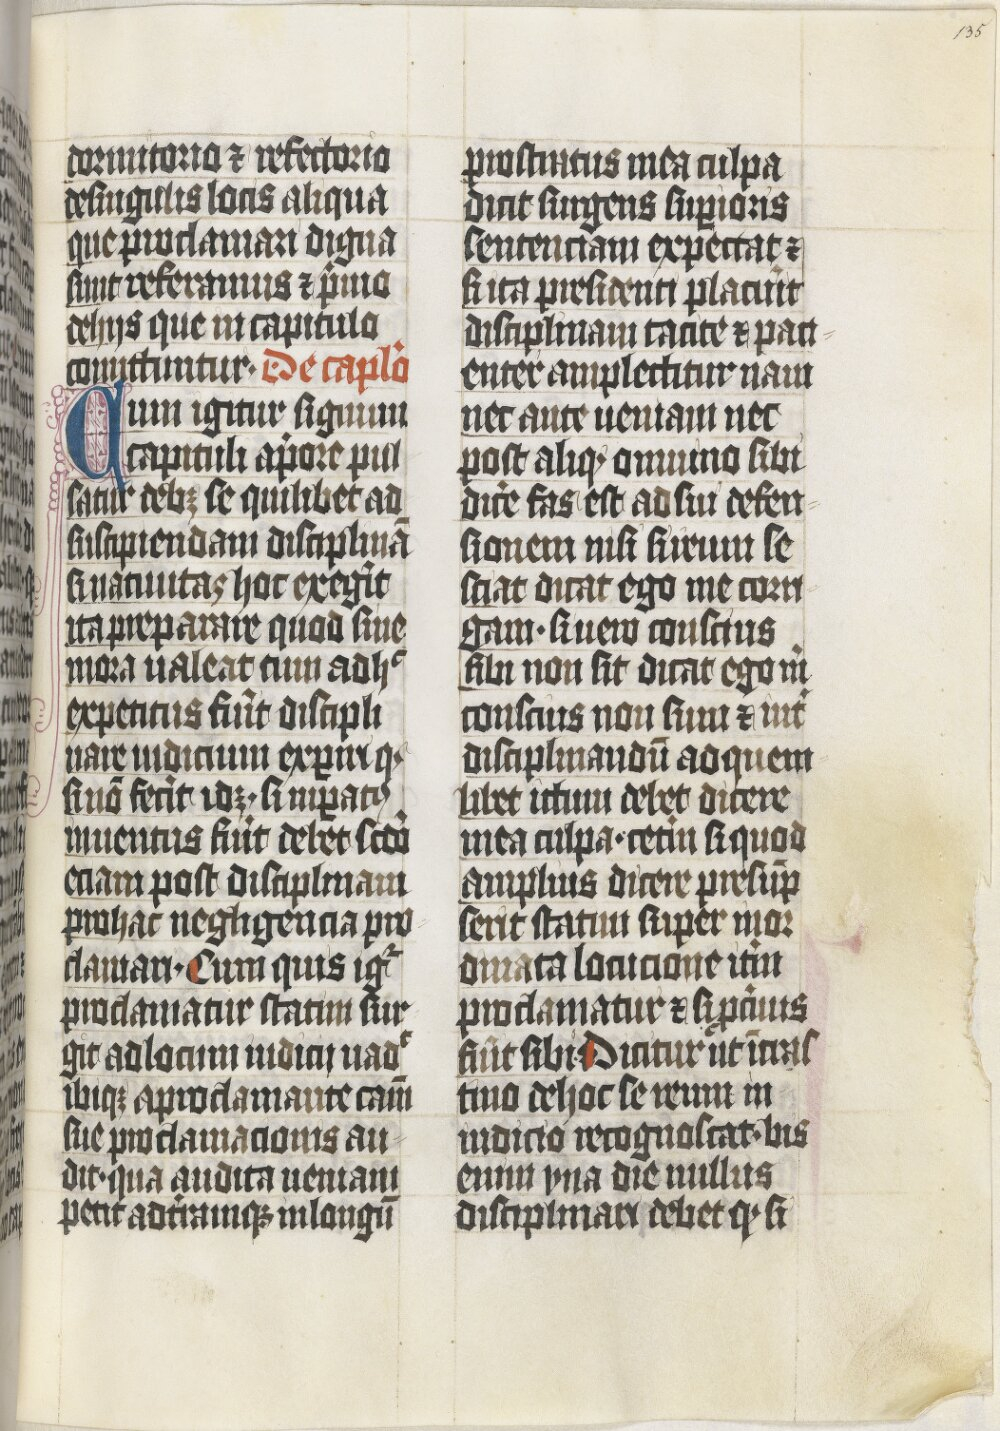 135
dormitorio ⁊ refectorio
desingulis locis aliqua
que proclamari digna
sunt referamus ⁊ p̄mo
dehijs que in capitulo
comittuntur· De capl̄o
Cum igitur signum
capituli ap̄ore pul
satur debꝫ se quilibet ad
suscipiendam disciplinā
si nativitas hoc exeḡit
ita preparare quod sine
mora ualeat cum adhᶜ
expetitus fūit discipli
nare iudicium expiri
si nō fec̄it idꝫ· si
inuentus fūit debet
eciam post disciplinam
prohac negligencia pro
clamari· Cum quis igᷓ
proclamatur statim sur
git adlocum iudicij uadᶜ
ibiqꝫ aproclamante cam̄
sue proclamacionis au
dit· qua audita ueniam
petit inlongū
prostratus mea culpa
dicit surgens suprioris
sentenciam expectat ⁊
si ita presidenti placūit
disciplinam tacite ⁊ paci
enter amplectitur nam
nec ante ueniam nec
post aliqꝫ omnino sibi
dic̄e fas est ad sui defen
sionem nisi si reum se
sciat dicat ego me corri
gam· si uero conscius
sibi non sit dicat ego m̄
conscius non sum ⁊ int̄
disciplinandū ad quem
libet ictum debet dicere
mea culpa· cet̄m si quod
amplius dicere presūp
serit statim super mor
dinata locucione it̄m
proclamatur ⁊
fūit sibi· Dicitur
tuo dehoc se reum in
iudicio recognoscat· bis
enim yna die nullus
disciplinari debet si